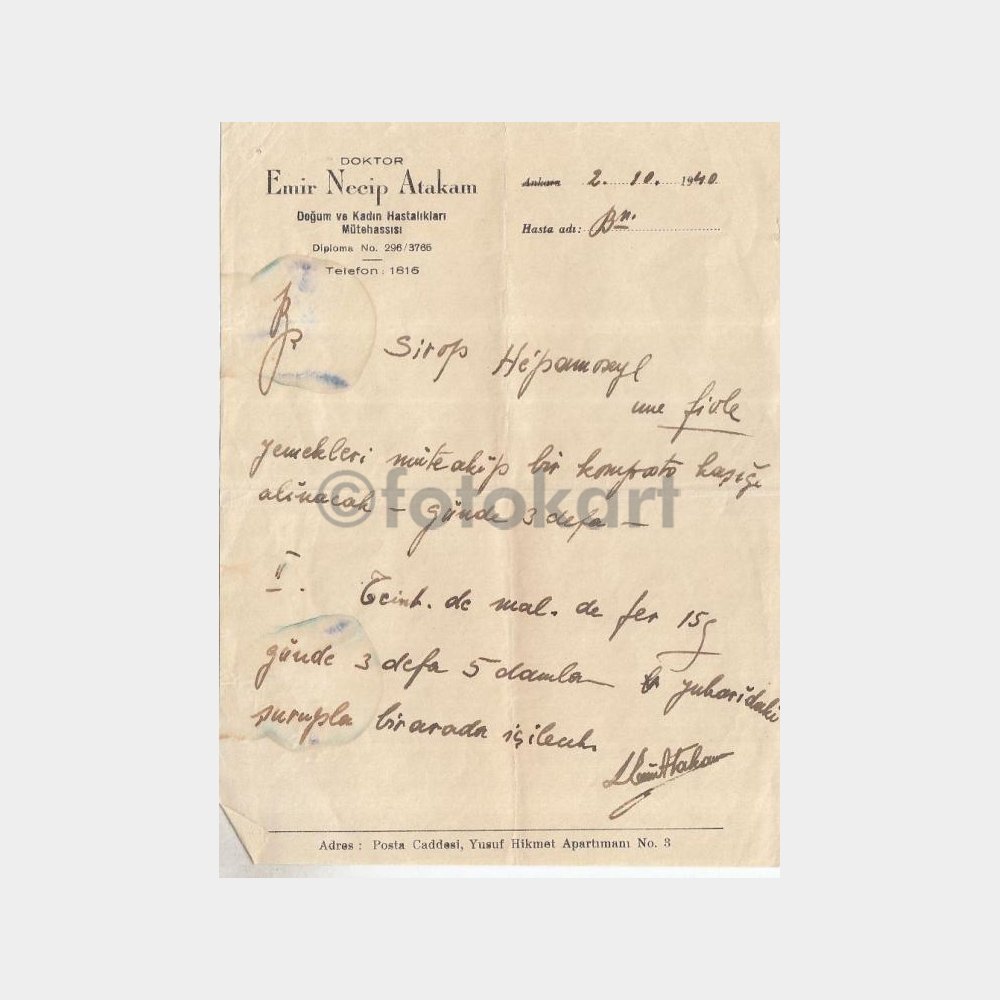 DOKTOR
Emir Necip Atakam
Doğum ve Kadın Hastalıkları
Mütehassısı
Diploma No. 296/3765
Telefon: 1616
Ankara 2. 10. 1940
Hasta adı: Bn.
Sirop Hépamoxyl
une fiole
yemekleri müteakip bir komposto kaşığı
alınacak - günde 3 defa -
©fotokart
II.
Teint. de mal. de fer 15g
günde 3 defa 5 damla yukarıdaki
şurupla birarada içilecek.
Adres: Posta Caddesi, Yusuf Hikmet Apartımanı No. 3